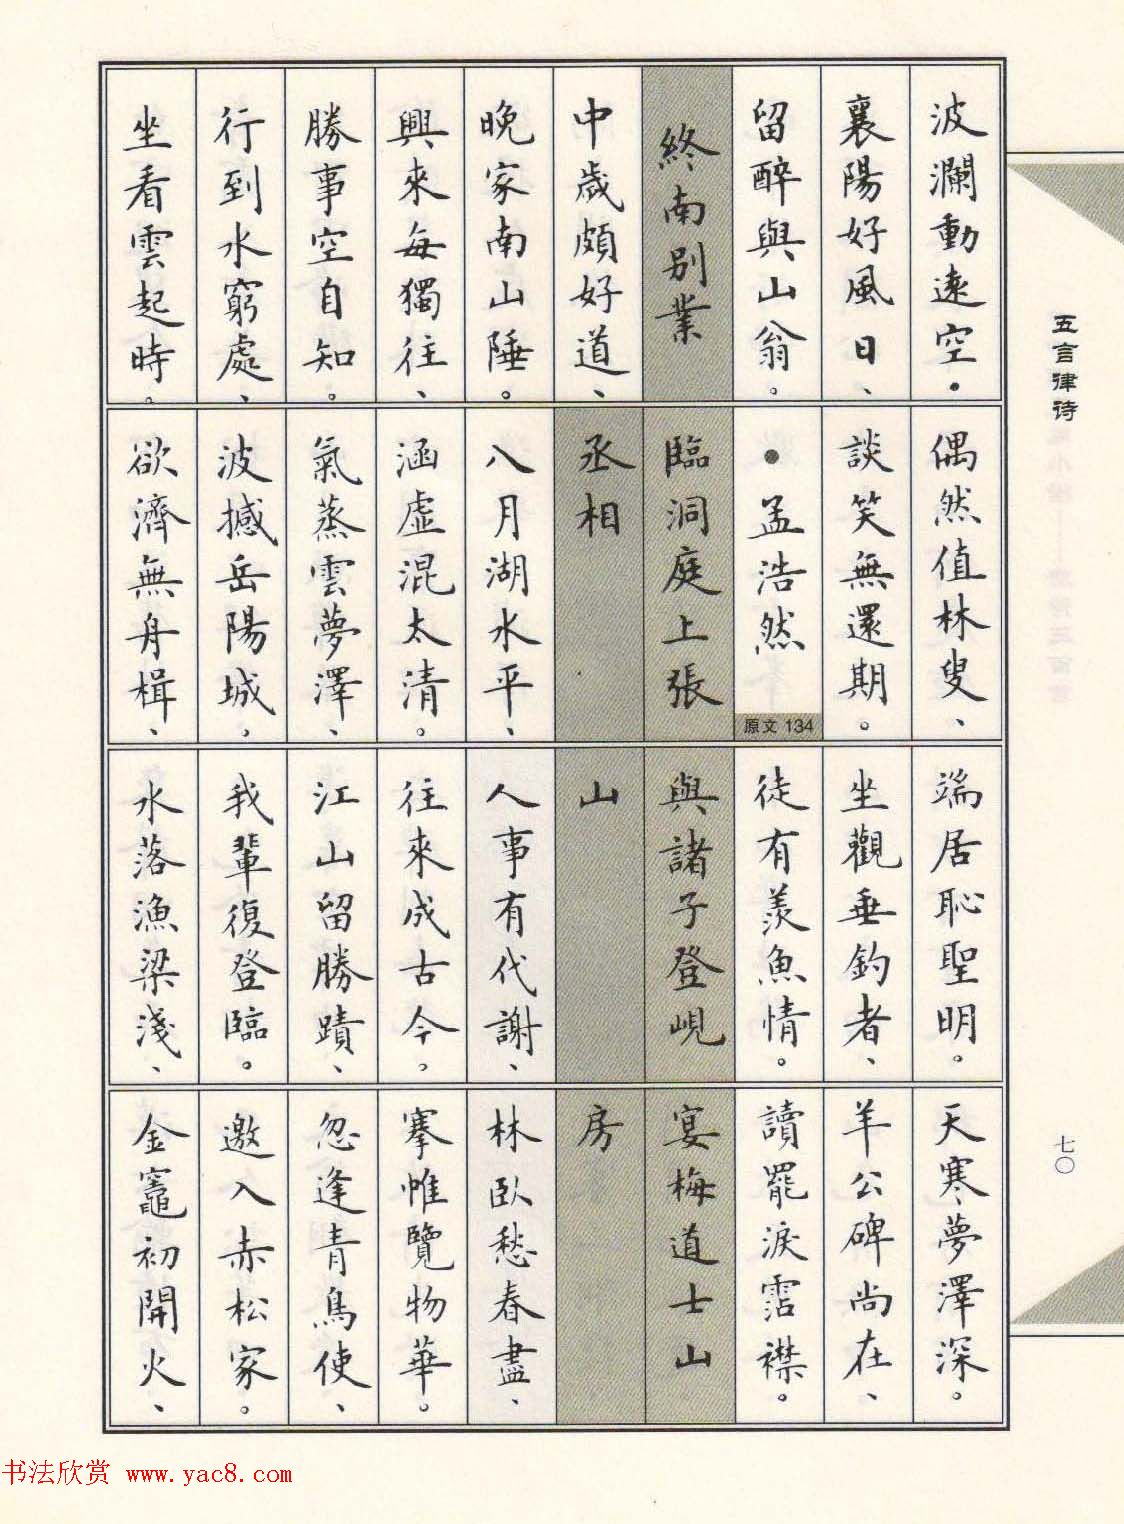 波瀾動遠空。
襄陽好風日、
留醉與山翁。
終南別業
中歲頗好道、
晚家南山陲。
興來每獨往、
勝事空自知。
行到水窮處、
坐看雲起時。
偶然值林叟、
談笑無還期。
●孟浩然
原文 134
臨洞庭上張
丞相
八月湖水平、
涵虛混太清。
氣蒸雲夢澤、
波撼岳陽城,
欲濟無舟楫、
端居恥聖明。
坐觀垂釣者、
徒有羨魚情。
與諸子登峴
山
人事有代謝、
往來成古今。
江山留勝蹟、
我輩復登臨。
水落漁梁淺、
天寒夢澤深。
羊公碑尚在、
讀罷淚霑襟。
宴梅道士山
房
林臥愁春盡、
搴帷覽物華。
忽逢青鳥使、
邀入赤松家。
金竈初開火、
五言律诗
七〇
书法欣赏 www.yac8.com